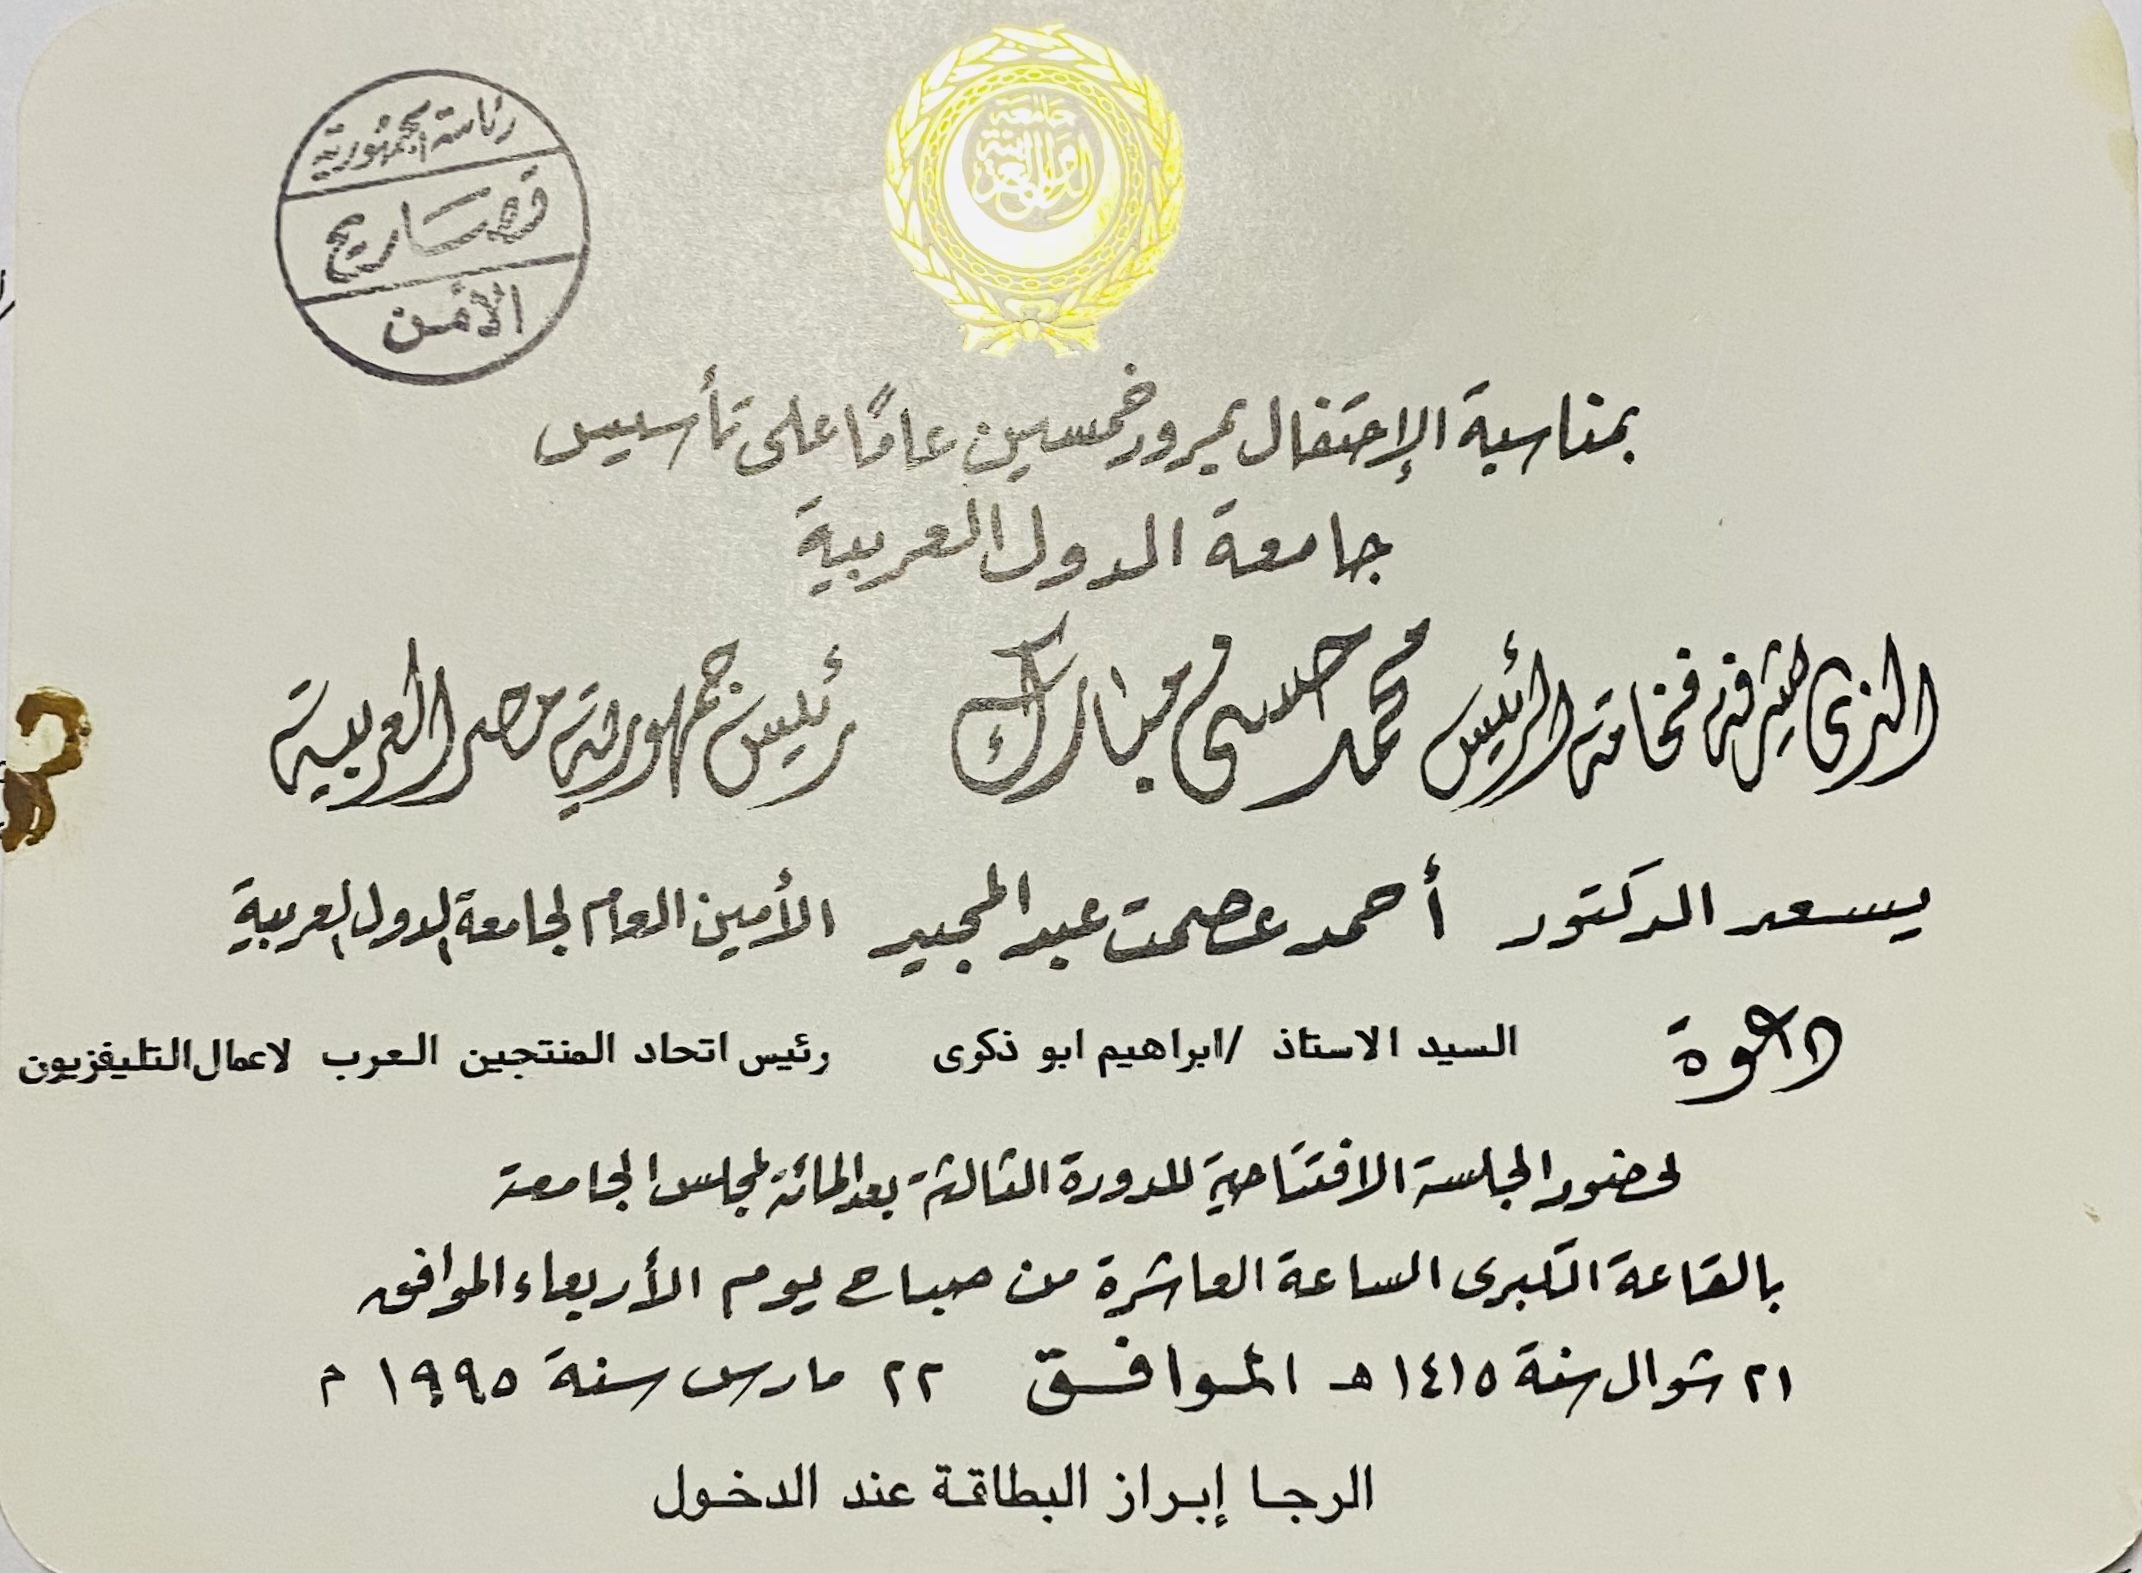 رئاسة الجمهورية
تصاريح
الأمن
جامعة
الدول العربية
بمناسبة الإحتفال بمرور خمسين عامًا على تأسيس
جامعة الدول العربية
الذى يشرفه فخامة الرئيس محمد حسنى مبارك رئيس جمهورية مصر العربية
يسعد الدكتور أحمد عصمت عبد المجيد الأمين العام لجامعة الدول العربية
دعوة السيد الاستاذ /ابراهيم ابو ذكرى رئيس اتحاد المنتجين العرب لاعمال التليفزيون
لحضور الجلسة الافتتاحية للدورة الثالثة بعد المائة لمجلس الجامعة
بالقاعة الكبرى الساعة العاشرة من صباح يوم الأربعاء الموافق
٢١ شوال سنة ١٤١٥ هـ الموافق ٢٢ مارس سنة ١٩٩٥ م
الرجا إبراز البطاقة عند الدخول